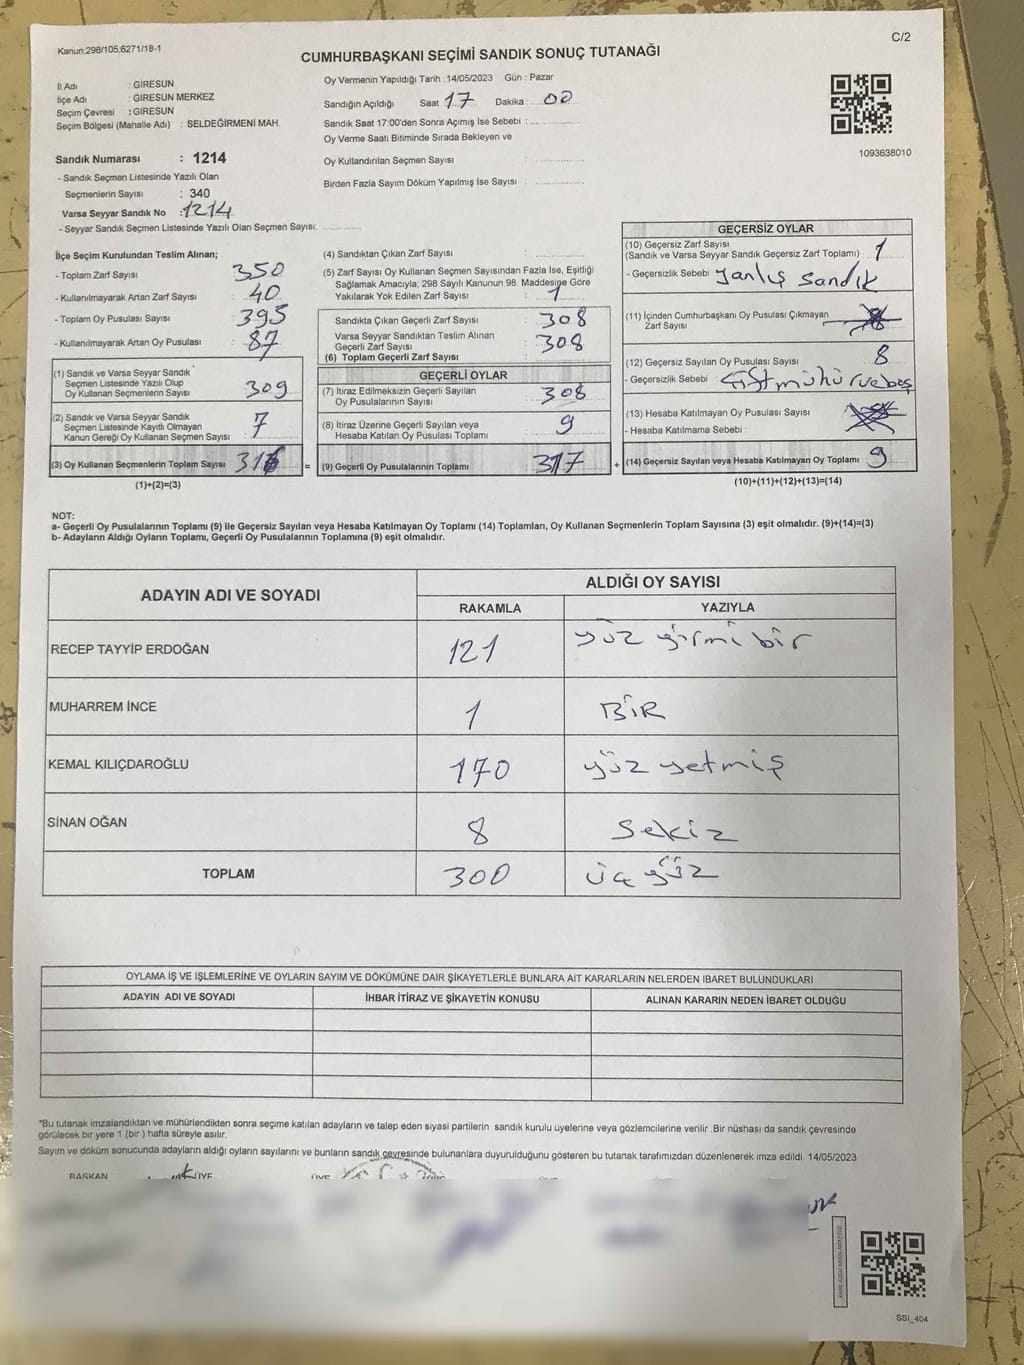 Kanun:298/105,6271/18-1
C/2
CUMHURBAŞKANI SEÇİMİ SANDIK SONUÇ TUTANAĞI
İl Adı : GİRESUN
İlçe Adı : GİRESUN MERKEZ
Seçim Çevresi : GİRESUN
Seçim Bölgesi (Mahalle Adı) : SELDEĞİRMENİ MAH.
Sandık Numarası : 1214
- Sandık Seçmen Listesinde Yazılı Olan
Seçmenlerin Sayısı : 340
Varsa Seyyar Sandık No : 1214
- Seyyar Sandık Seçmen Listesinde Yazılı Olan Seçmen Sayısı:
Oy Vermenin Yapıldığı Tarih : 14/05/2023 Gün : Pazar
Sandığın Açıldığı Saat 17 Dakika : 00
Sandık Saat 17:00'den Sonra Açımış İse Sebebi :
Oy Verme Saati Bitiminde Sırada Bekleyen ve
Oy Kullandırılan Seçmen Sayısı :
Birden Fazla Sayım Döküm Yapılmış İse Sayısı :
1093638010
İlçe Seçim Kurulundan Teslim Alınan;
- Toplam Zarf Sayısı : 350
- Kullanılmayarak Artan Zarf Sayısı : 40
- Toplam Oy Pusulası Sayısı : 395
- Kullanılmayarak Artan Oy Pusulası : 87
(1) Sandık ve Varsa Seyyar Sandık
Seçmen Listesinde Yazılı Olup
Oy Kullanan Seçmenlerin Sayısı : 309
(2) Sandık ve Varsa Seyyar Sandık
Seçmen Listesinde Kayıtlı Olmayan
Kanun Gereği Oy Kullanan Seçmen Sayısı : 7
(3) Oy Kullanan Seçmenlerin Toplam Sayısı 316 =
(1)+(2)=(3)
(4) Sandıktan Çıkan Zarf Sayısı :
(5) Zarf Sayısı Oy Kullanan Seçmen Sayısından Fazla İse, Eşitliği
Sağlamak Amacıyla; 298 Sayılı Kanunun 98. Maddesine Göre
Yakılarak Yok Edilen Zarf Sayısı : 1
Sandıkta Çıkan Geçerli Zarf Sayısı : 308
Varsa Seyyar Sandıktan Teslim Alınan
Geçerli Zarf Sayısı : 308
(6) Toplam Geçerli Zarf Sayısı :
GEÇERLİ OYLAR
(7) İtiraz Edilmeksizin Geçerli Sayılan
Oy Pusulalarının Sayısı : 308
(8) İtiraz Üzerine Geçerli Sayılan veya
Hesaba Katılan Oy Pusulası Toplamı : 9
(9) Geçerli Oy Pusulalarının Toplamı : 317 +
GEÇERSİZ OYLAR
(10) Geçersiz Zarf Sayısı
(Sandık ve Varsa Seyyar Sandık Geçersiz Zarf Toplamı) : 1
- Geçersizlik Sebebi : Yanlış sandık
(11) İçinden Cumhurbaşkanı Oy Pusulası Çıkmayan
Zarf Sayısı
(12) Geçersiz Sayılan Oy Pusulası Sayısı : 8
- Geçersizlik Sebebi : Çift mühür ve boş
(13) Hesaba Katılmayan Oy Pusulası Sayısı :
- Hesaba Katılmama Sebebi :
(14) Geçersiz Sayılan veya Hesaba Katılmayan Oy Toplamı : 9
(10)+(11)+(12)+(13)=(14)
NOT:
a- Geçerli Oy Pusulalarının Toplamı (9) ile Geçersiz Sayılan veya Hesaba Katılmayan Oy Toplamı (14) Toplamları, Oy Kullanan Seçmenlerin Toplam Sayısına (3) eşit olmalıdır. (9)+(14)=(3)
b- Adayların Aldığı Oyların Toplamı, Geçerli Oy Pusulalarının Toplamına (9) eşit olmalıdır.
ADAYIN ADI VE SOYADI
ALDIĞI OY SAYISI
RAKAMLA YAZIYLA
RECEP TAYYİP ERDOĞAN 121 yüz yirmi bir
MUHARREM İNCE 1 BİR
KEMAL KILIÇDAROĞLU 170 yüz yetmiş
SİNAN OĞAN 8 Sekiz
TOPLAM 300 üç yüz
OYLAMA İŞ VE İŞLEMLERİNE VE OYLARIN SAYIM VE DÖKÜMÜNE DAİR ŞİKAYETLERLE BUNLARA AİT KARARLARIN NELERDEN İBARET BULUNDUKLARI
ADAYIN ADI VE SOYADI İHBAR İTİRAZ VE ŞİKAYETİN KONUSU ALINAN KARARIN NEDEN İBARET OLDUĞU
"Bu tutanak imzalandıktan ve mühürlendikten sonra seçime katılan adayların ve talep eden siyasi partilerin sandık kurulu üyelerine veya gözlemcilerine verilir .Bir nüshası da sandık çevresinde
görülecek bir yere 1 (bir ) hafta süreyle asılır.
Sayım ve döküm sonucunda adayların aldığı oyların sayılarını ve bunların sandık çevresinde bulunanlara duyurulduğunu gösteren bu tutanak tarafımızdan düzenlenerek imza edildi. 14/05/2023
BAŞKAN ÜYE ÜYE
SSI_404